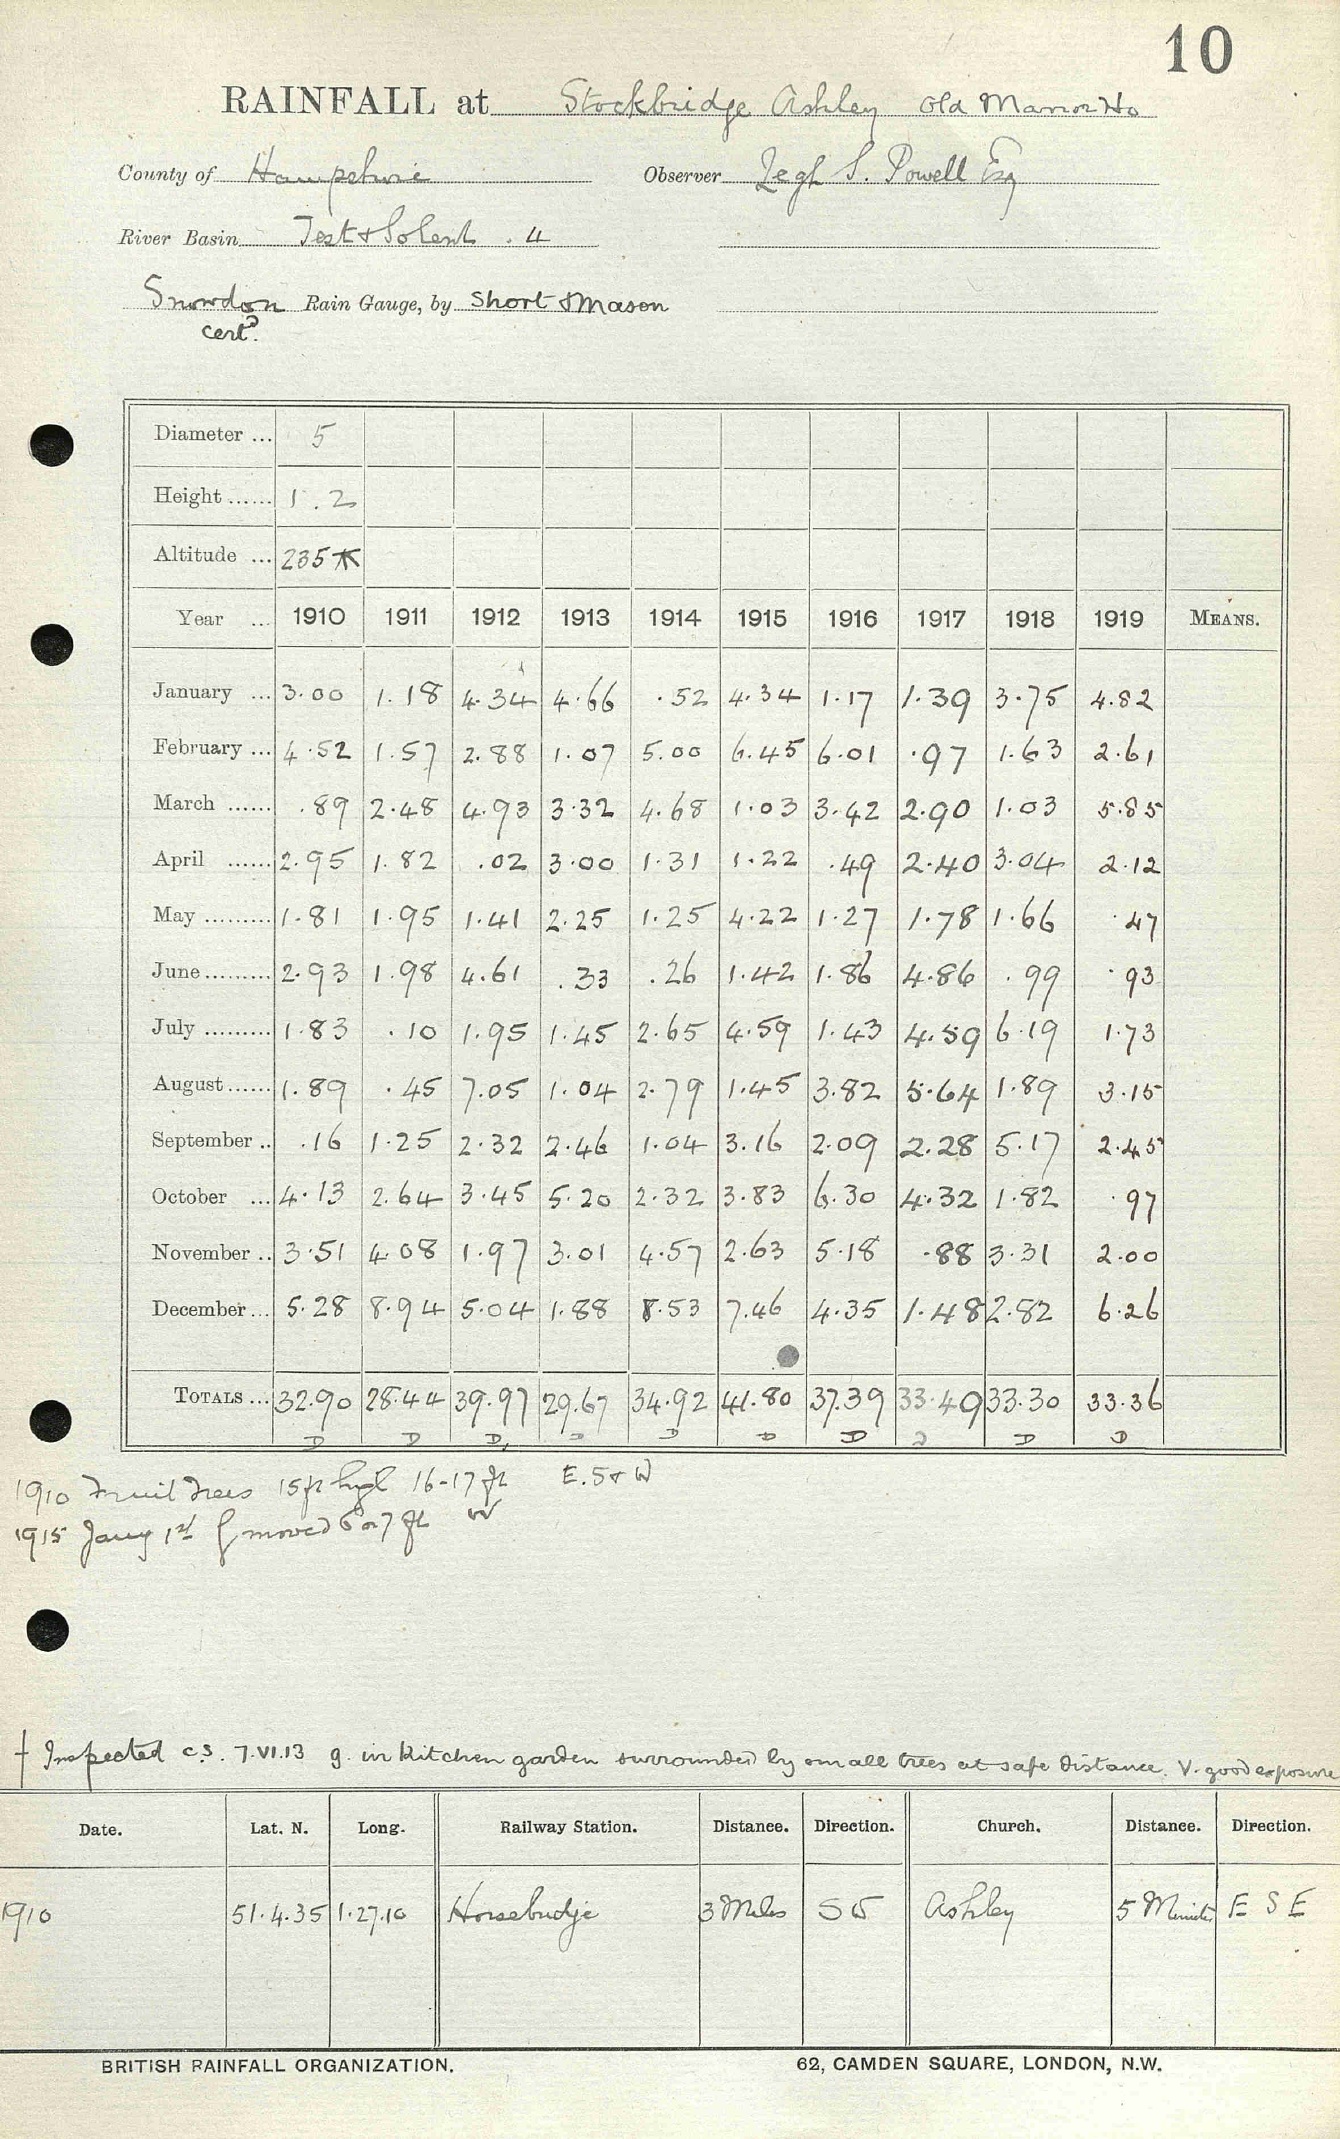 10
RAINFALL at Stockbridge Ashley Old Manor Ho
County of Hampshire Observer Legh S. Powell Esq
River Basin Test & Solent . 4
Snowdon Rain Gauge, by Short & Mason
certd.
Diameter ... 5
Height ...... 1.2
Altitude ... 235
Year ... 1910 1911 1912 1913 1914 1915 1916 1917 1918 1919 MEANS.
January ... 3.00 1.18 4.34 4.66 .52 4.34 1.17 1.39 3.75 4.82
February ... 4.52 1.57 2.88 1.07 5.00 6.45 6.01 .97 1.63 2.61
March ...... .89 2.48 4.93 3.32 4.68 1.03 3.42 2.90 1.03 5.85
April ...... 2.95 1.82 .02 3.00 1.31 1.22 .49 2.40 3.04 2.12
May ......... 1.81 1.95 1.41 2.25 1.25 4.22 1.27 1.78 1.66 .47
June ......... 2.93 1.98 4.61 .33 .26 1.42 1.86 4.86 .99 .93
July ......... 1.83 .10 1.95 1.45 2.65 4.59 1.43 4.59 6.19 1.73
August ...... 1.89 .45 7.05 1.04 2.79 1.45 3.82 5.64 1.89 3.15
September .. .16 1.25 2.32 2.46 1.04 3.16 2.09 2.28 5.17 2.45
October ... 4.13 2.64 3.45 5.20 2.32 3.83 6.30 4.32 1.82 .97
November .. 3.51 4.08 1.97 3.01 4.57 2.63 5.18 .88 3.31 2.00
December ... 5.28 8.94 5.04 1.88 8.53 7.46 4.35 1.48 2.82 6.26
TOTALS ... 32.90 28.44 39.97 29.67 34.92 41.80 37.39 33.49 33.30 33.36
D D D D D D D D D D
1910 Fruit Trees 15 ft high 16-17 ft E. S & W
1915 Jany 1st moved 6 or 7 ft W
† Inspected C.S. 7.VI.13 g. in kitchen garden surrounded by small trees at safe distance. V. good exposure
Date. Lat. N. Long. Railway Station. Distance. Direction. Church. Distance. Direction.
1910 51.4.35 1.27.10 Horsebridge 3 Miles SW Ashley 5 Minutes E S E
BRITISH RAINFALL ORGANIZATION. 62, CAMDEN SQUARE, LONDON, N.W.